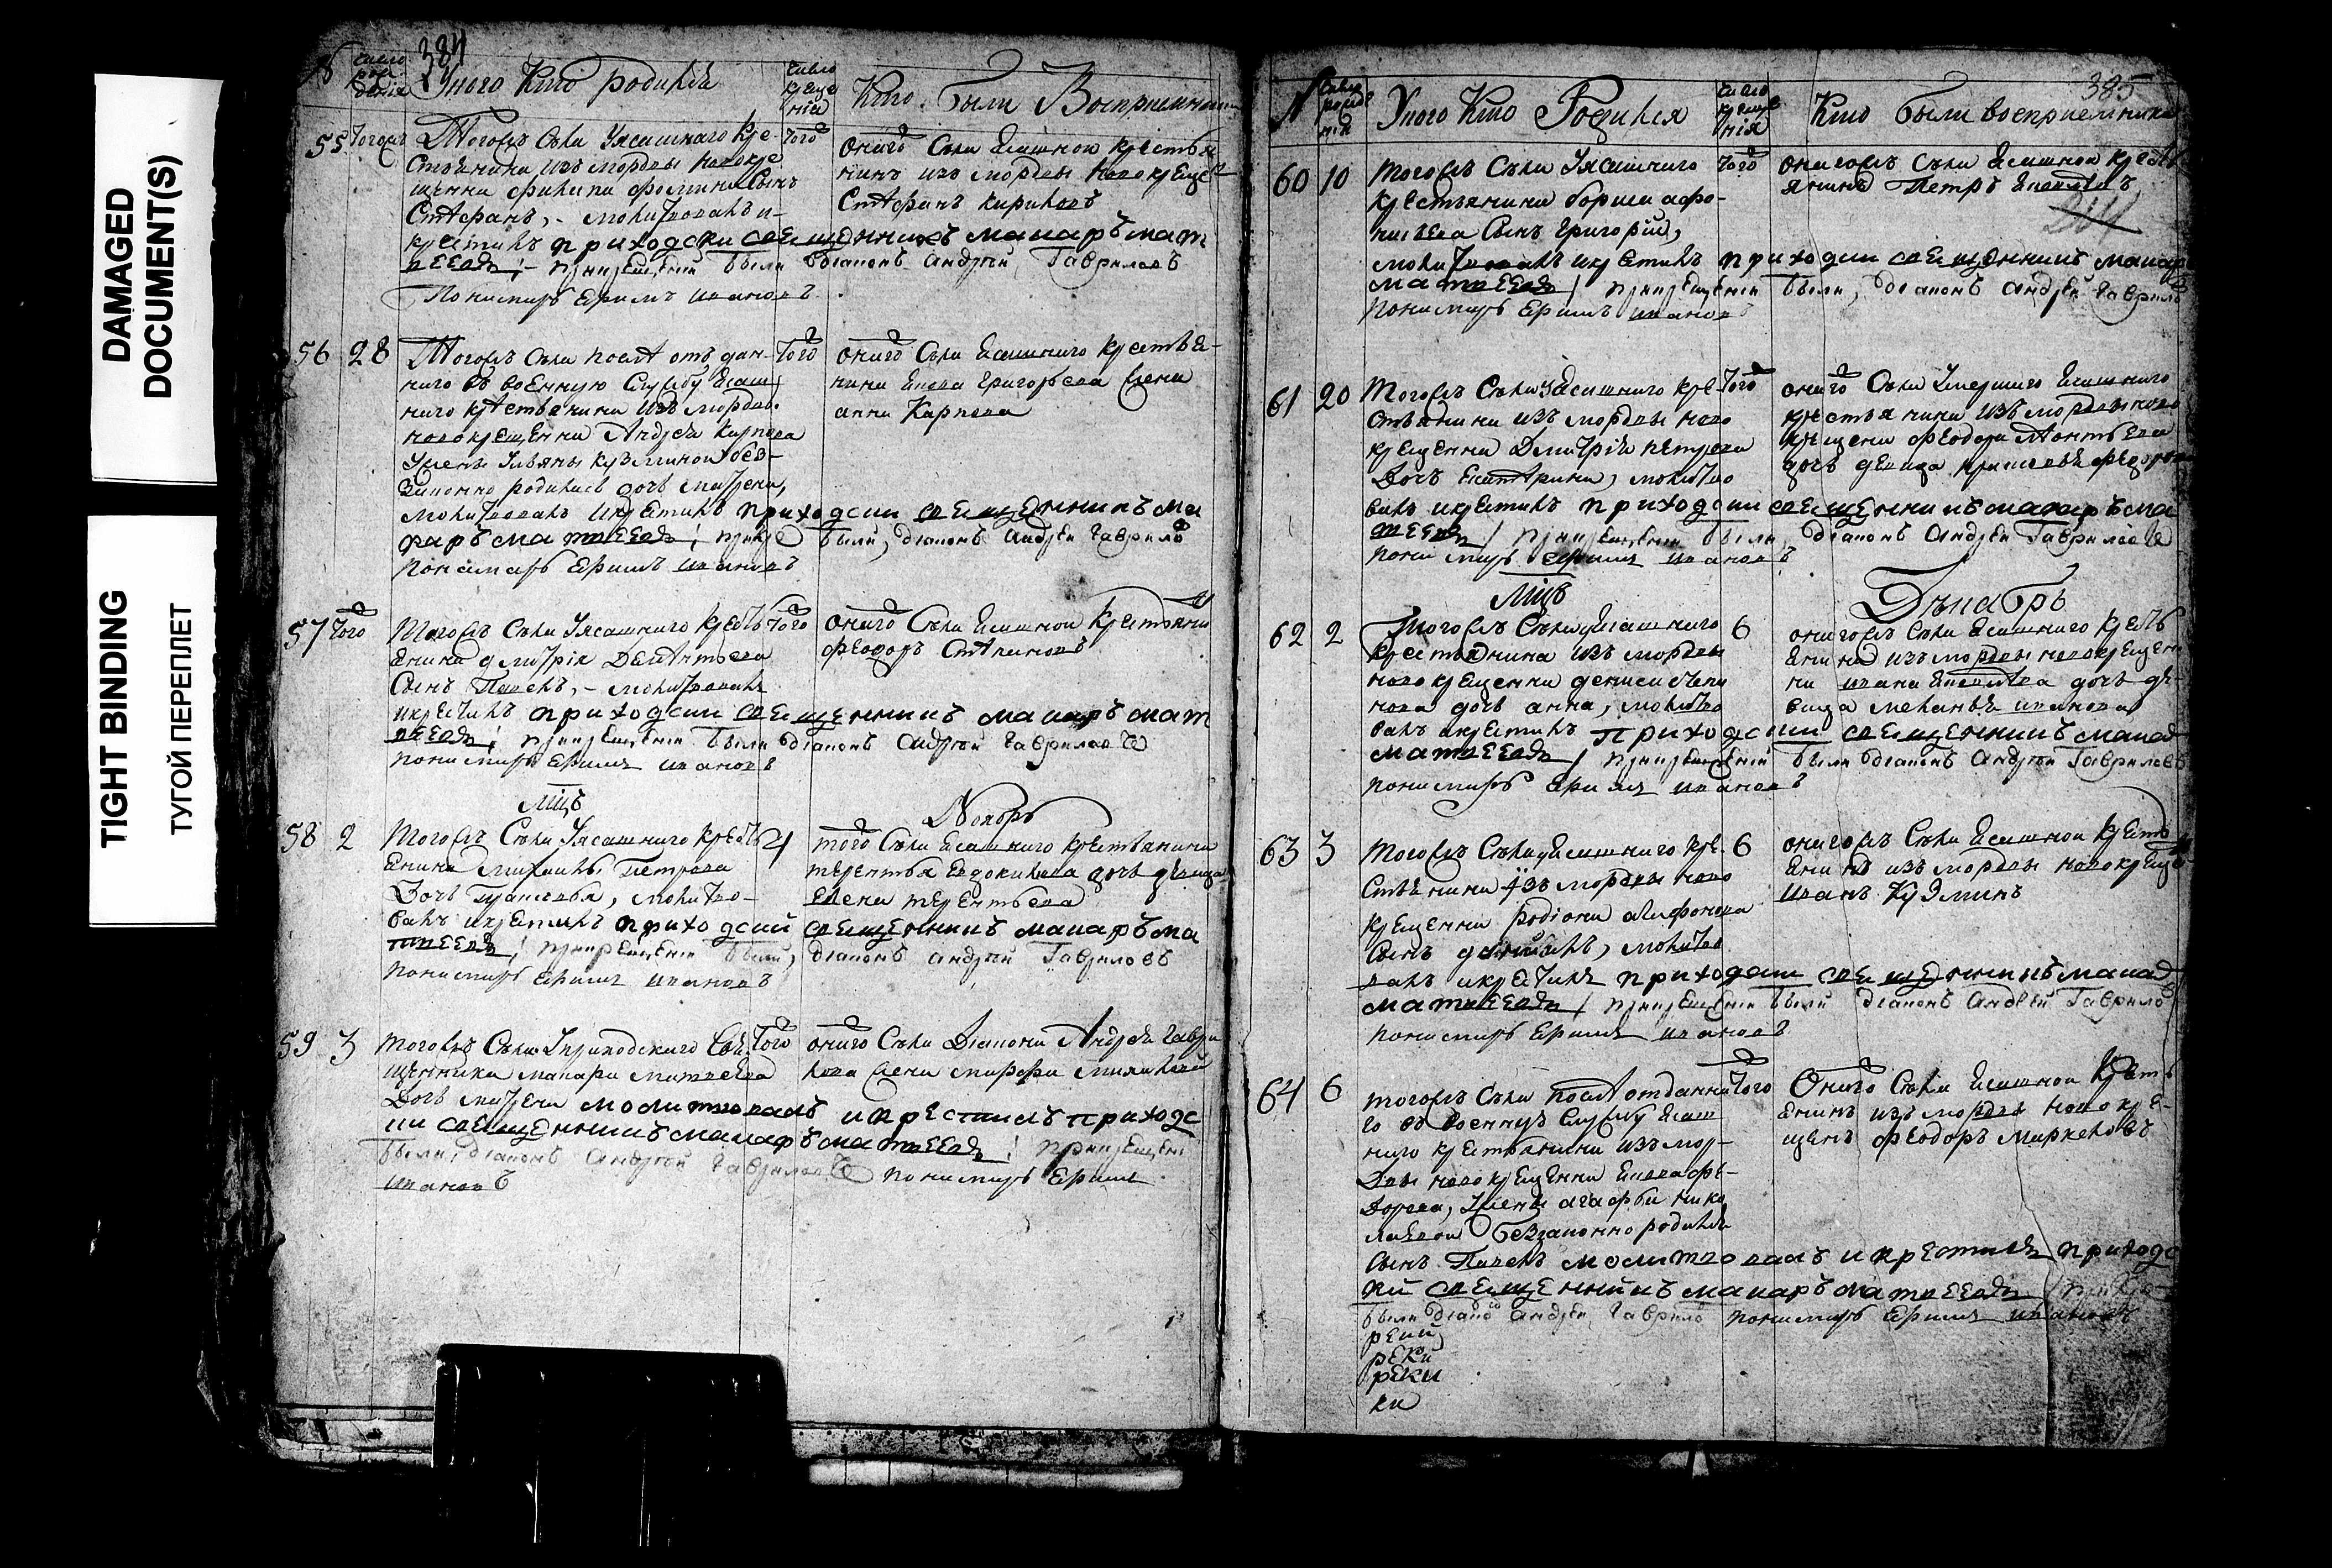 DAMAGED
DOCUMENT(S)
TIGHT BINDING
ТУГОЙ ПЕРЕПЛЕТ
384
число рождения
У кого кто родился
число крещения
Кто были Восприемники
55 Того
Того Села У ясашнаго кре-
стьянина изъ мордвы новокре
щенна Филипа Фомина Сынъ
Стефанъ, - молитвовалъ и
крестилъ приходски священникъ макаръ мат
веевъ; при крещении были диаконъ андрей Гавриловъ
Пономарь Ефимъ ивановъ
того
оного Села Ясашной крестья
нинъ изъ мордвы новокреще
Стефанъ Кириловъ
56 28
Того Села посля отдан-
ного в военную службу Ясаш
ного крестьянина изъ мордвы
новокрещенна Андрея Карпова
У жены Ульяны кузминой без-
законно родилась дочь матрена,
молитвовалъ и крестилъ приходски священникъ ма
каръ матвеевъ; были, диаконъ андрей Гаврило
пономарь Ефимъ ивановъ
того
оного Села Ясашного крестья-
нина Якова Григорьева жена
анна Карпова
57 того
Того Села У ясашного крестъ
янина дмитрия Дементьева
Сынъ Павелъ, - молитвовалъ
и крестилъ приходски священникъ макаръ мат
веевъ; при крещении были диаконъ андрей Гавриловъ
пономарь Ефимъ ивановъ
того
оного Села Ясашной крестьянинъ
феодоръ Степановъ
мцъ Ноябрь
58 2
Того Села У ясашного крестъ
янина михаилы Петрова
Дочь Прасковья, молитво-
валъ и крестилъ приходски священникъ макаръ ма
твеевъ; при крещении были, диаконъ андрей Гавриловъ
пономарь Ефимъ ивановъ
4
того Села Ясашного крестьянина
терентья Евдокимова дочь девица
Елена терентьева
59 3
того Села У приходского Свя
щенника макара матвеева
Дочь матрена молитвовалъ и крестилъ приходс
ки священникъ макаръ матвеевъ; при крещени
были, диаконъ андрей Гавриловъ пономарь Ефимъ
ивановъ
того
оного Села Диакона Андрея Гаври
лова жена марфа михайлова
385
число рождения
У кого кто Родился
число крещения
Кто были восприемники
60 10
Того Села У ясашного
крестьянина бориса афо-
насьева Сынъ Григорий,
молитвовалъ и крестилъ приходски священникъ макар
матвеевъ; при крещении были, диаконъ андрей Гаврилов
пономарь Ефимъ ивановъ
того
оного Села Ясашной крестья
янинъ Петръ Яковлевъ
61 20
Того Села У Ясашного кре
стьянина изъ мордвы ново
крещенна Дмитрия петрова
Дочь Екатерина, молитво
валъ и крестилъ приходски священникъ макаръ ма
твеевъ; при крещении были, диаконъ андрей Гавриловъ
пономарь Ефимъ ивановъ
того
оного Села Умершаго Ясашного
крестьянина изъ мордвы ново
крещена феодора
дочь девица федорова
мцъ Декабрь
62 2
Того Села у Ясашного
крестьянина изъ мордвы
новокрещенна дениса степа
нова дочь анна, молитво
валъ и крестилъ приходски священникъ макар
матвеевъ; при крещении были диаконъ андрей Гавриловъ
пономарь Ефимъ ивановъ
6
оного Села Ясашного крестъ
янина изъ мордвы новокрещен
на ивана Яковлева дочь де-
вица иванова
63 3
Того Села у Ясашного кре-
стьянина изъ мордвы ново
крещенна родиона
Сынъ данилъ, молитво
валъ и крестилъ приходски священникъ макар
матвеевъ; при крещении были диаконъ андрей Гаврилов
пономарь Ефимъ ивановъ
6
оного Села Ясашной крестъ
янинъ изъ мордвы новокреще
иванъ Кузминъ
64 6
того Села посля отданна
го в военную службу Ясаш
ного крестьянина изъ мор-
двы новокрещенна Якова фе-
дорова, У жены агафьи нико
лаевой беззаконно родился
Сынъ Павелъ молитвовалъ и крестилъ приходс
ки священникъ макаръ матвеевъ; при кре-
были диако андрей Гаврило пономарь Ефимъ ивановъ
реки
реки
реки
ки
того
Оного Села Ясашной крестъ
янинъ изъ мордвы новокре-
щенъ феодоръ Маркеловъ